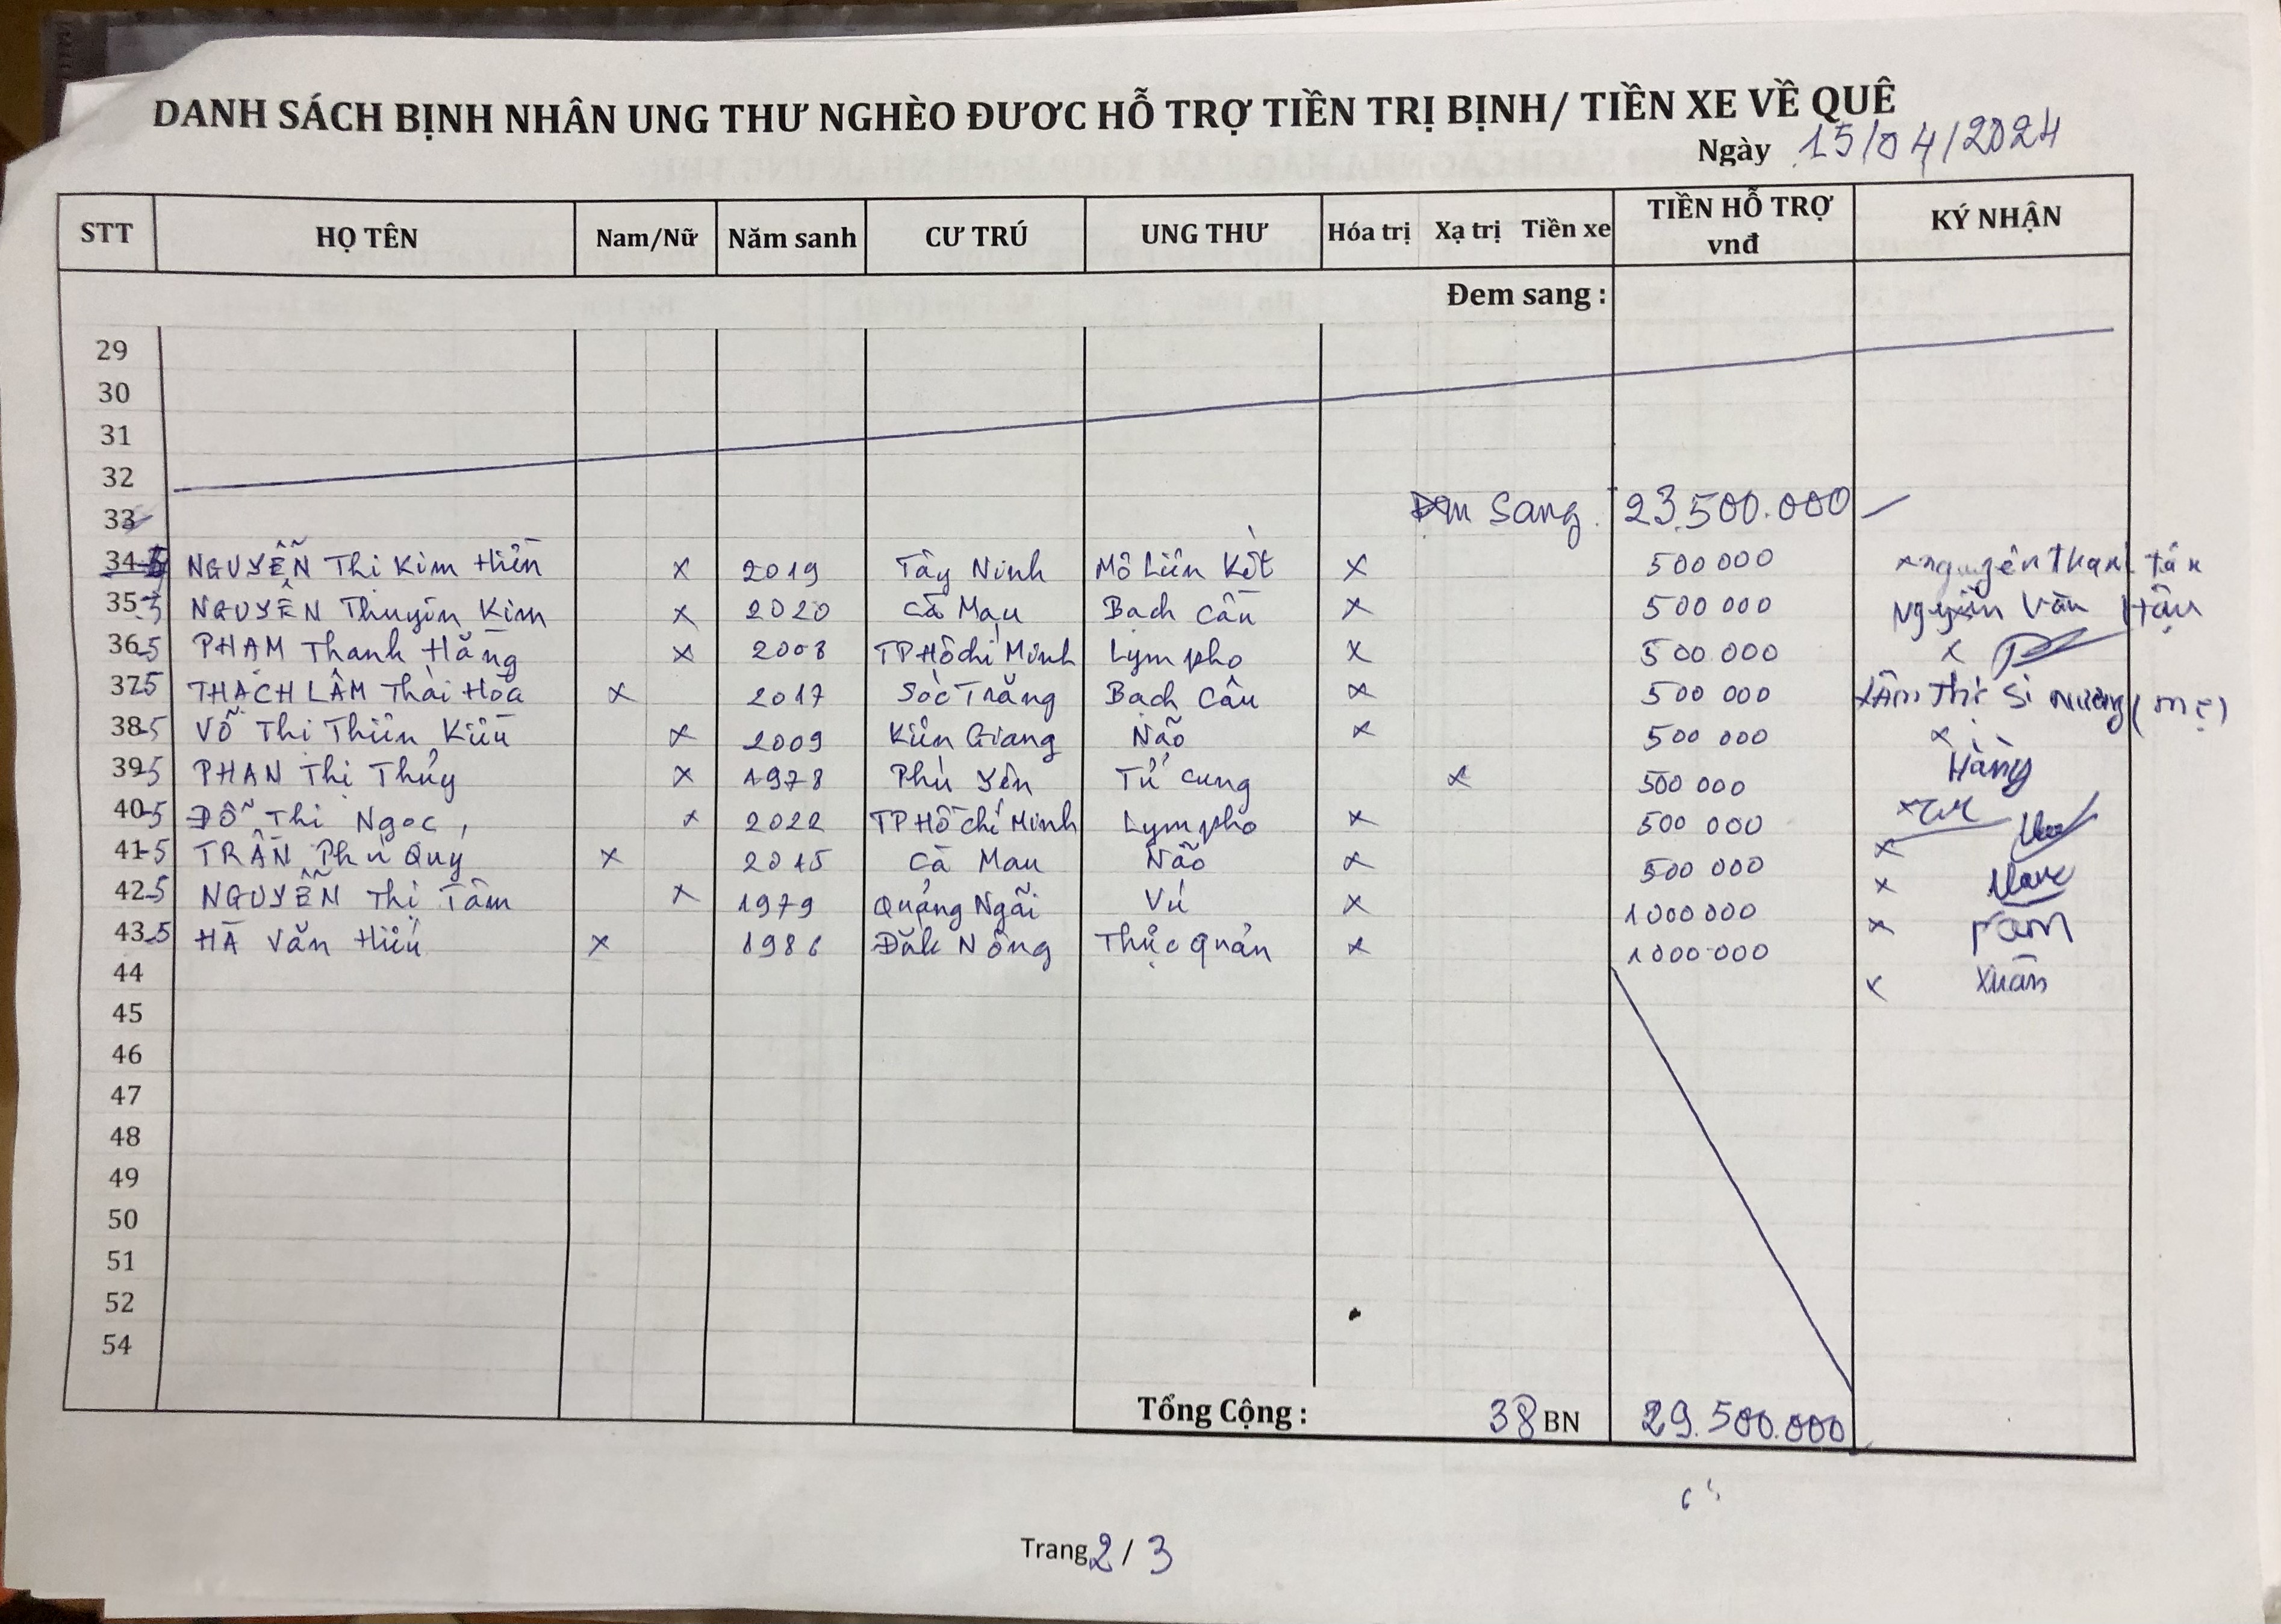 DANH SÁCH BỊNH NHÂN UNG THƯ NGHÈO ĐƯƠC HỖ TRỢ TIỀN TRỊ BỊNH/ TIỀN XE VỀ QUÊ
Ngày 15/04/2024
STT HỌ TÊN Nam/Nữ Năm sanh CƯ TRÚ UNG THƯ Hóa trị Xạ trị Tiền xe TIỀN HỖ TRỢ vnđ KÝ NHẬN
Đem sang :
29
30
31
32
33 Đem Sang 23.500.000
34-5 NGUYỄN Thị Kim Hiền x 2019 Tây Ninh Mô Liên Kết x 500 000 x nguyễn Thanh Tấn
35-5 NGUYỄN Thuyên Kim x 2020 Cà Mau Bạch Cầu x 500 000 Nguyễn Văn Hậu
36-5 PHẠM Thanh Hằng x 2008 TP Hồ Chí Minh Lympho x 500.000 x
37-5 THẠCH LÂM Thái Hòa x 2017 Sóc Trăng Bạch Cầu x 500 000 LÂm Thị Si Nương (mẹ)
38-5 VÕ Thị Thiên Kiều x 2009 Kiên Giang Não x 500 000 x
39-5 PHAN Thị Thủy x 1978 Phú Yên Tử cung x 500 000 Hằng
40-5 ĐỖ Thị Ngọc x 2022 TP Hồ Chí Minh Lympho x 500 000 x
41-5 TRẦN Phú Quý x 2015 Cà Mau Não x 500 000 x
42-5 NGUYỄN Thị Tâm x 1979 Quảng Ngãi Vú x 1000 000 x
43-5 HÀ Văn Hiếu x 1986 Đăk Nông Thực Quản x 1000 000 x Tâm
44 x Xuân
45
46
47
48
49
50
51
52
54
Tổng Cộng : 38 BN 29.500.000
Trang 2 / 3